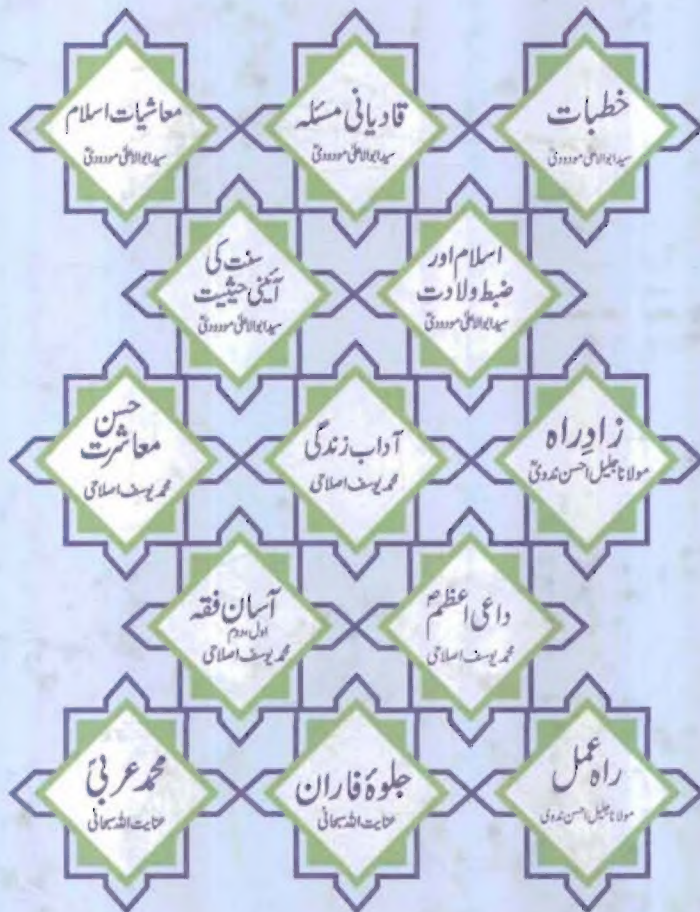 خطبات
سید ابوالاعلیٰ مودودیؒ
قادیانی مسئلہ
سید ابوالاعلیٰ مودودیؒ
معاشیات اسلام
سید ابوالاعلیٰ مودودیؒ
اسلام اور
ضبط ولادت
سید ابوالاعلیٰ مودودیؒ
سنت کی
آئینی حیثیت
سید ابوالاعلیٰ مودودیؒ
زادِ راہ
مولانا جلیل احسن ندویؒ
آداب زندگی
محمد یوسف اصلاحی
حسن
معاشرت
محمد یوسف اصلاحی
داعی اعظمؐ
محمد یوسف اصلاحی
آسان فقہ
اول، دوم
محمد یوسف اصلاحی
راہ عمل
مولانا جلیل احسن ندوی
جلوۂ فاران
عنایت اللہ سبحانی
محمد عربیؐ
عنایت اللہ سبحانی